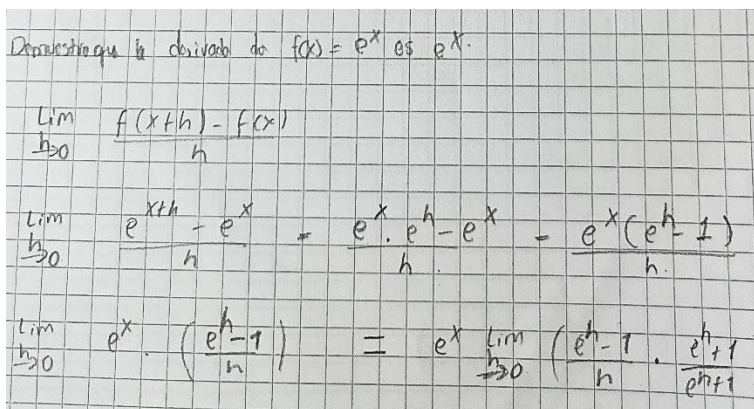 Demuestre que la derivada de f(x) = e^x es e^x.
Lim h→0 f(x+h) - f(x) / h
Lim h→0 e^(x+h) - e^x / h = e^x · e^h - e^x / h. = e^x (e^h - 1) / h.
Lim h→0 e^x · (e^h - 1 / h) = e^x Lim h→0 (e^h - 1 / h · e^h + 1 / e^h + 1